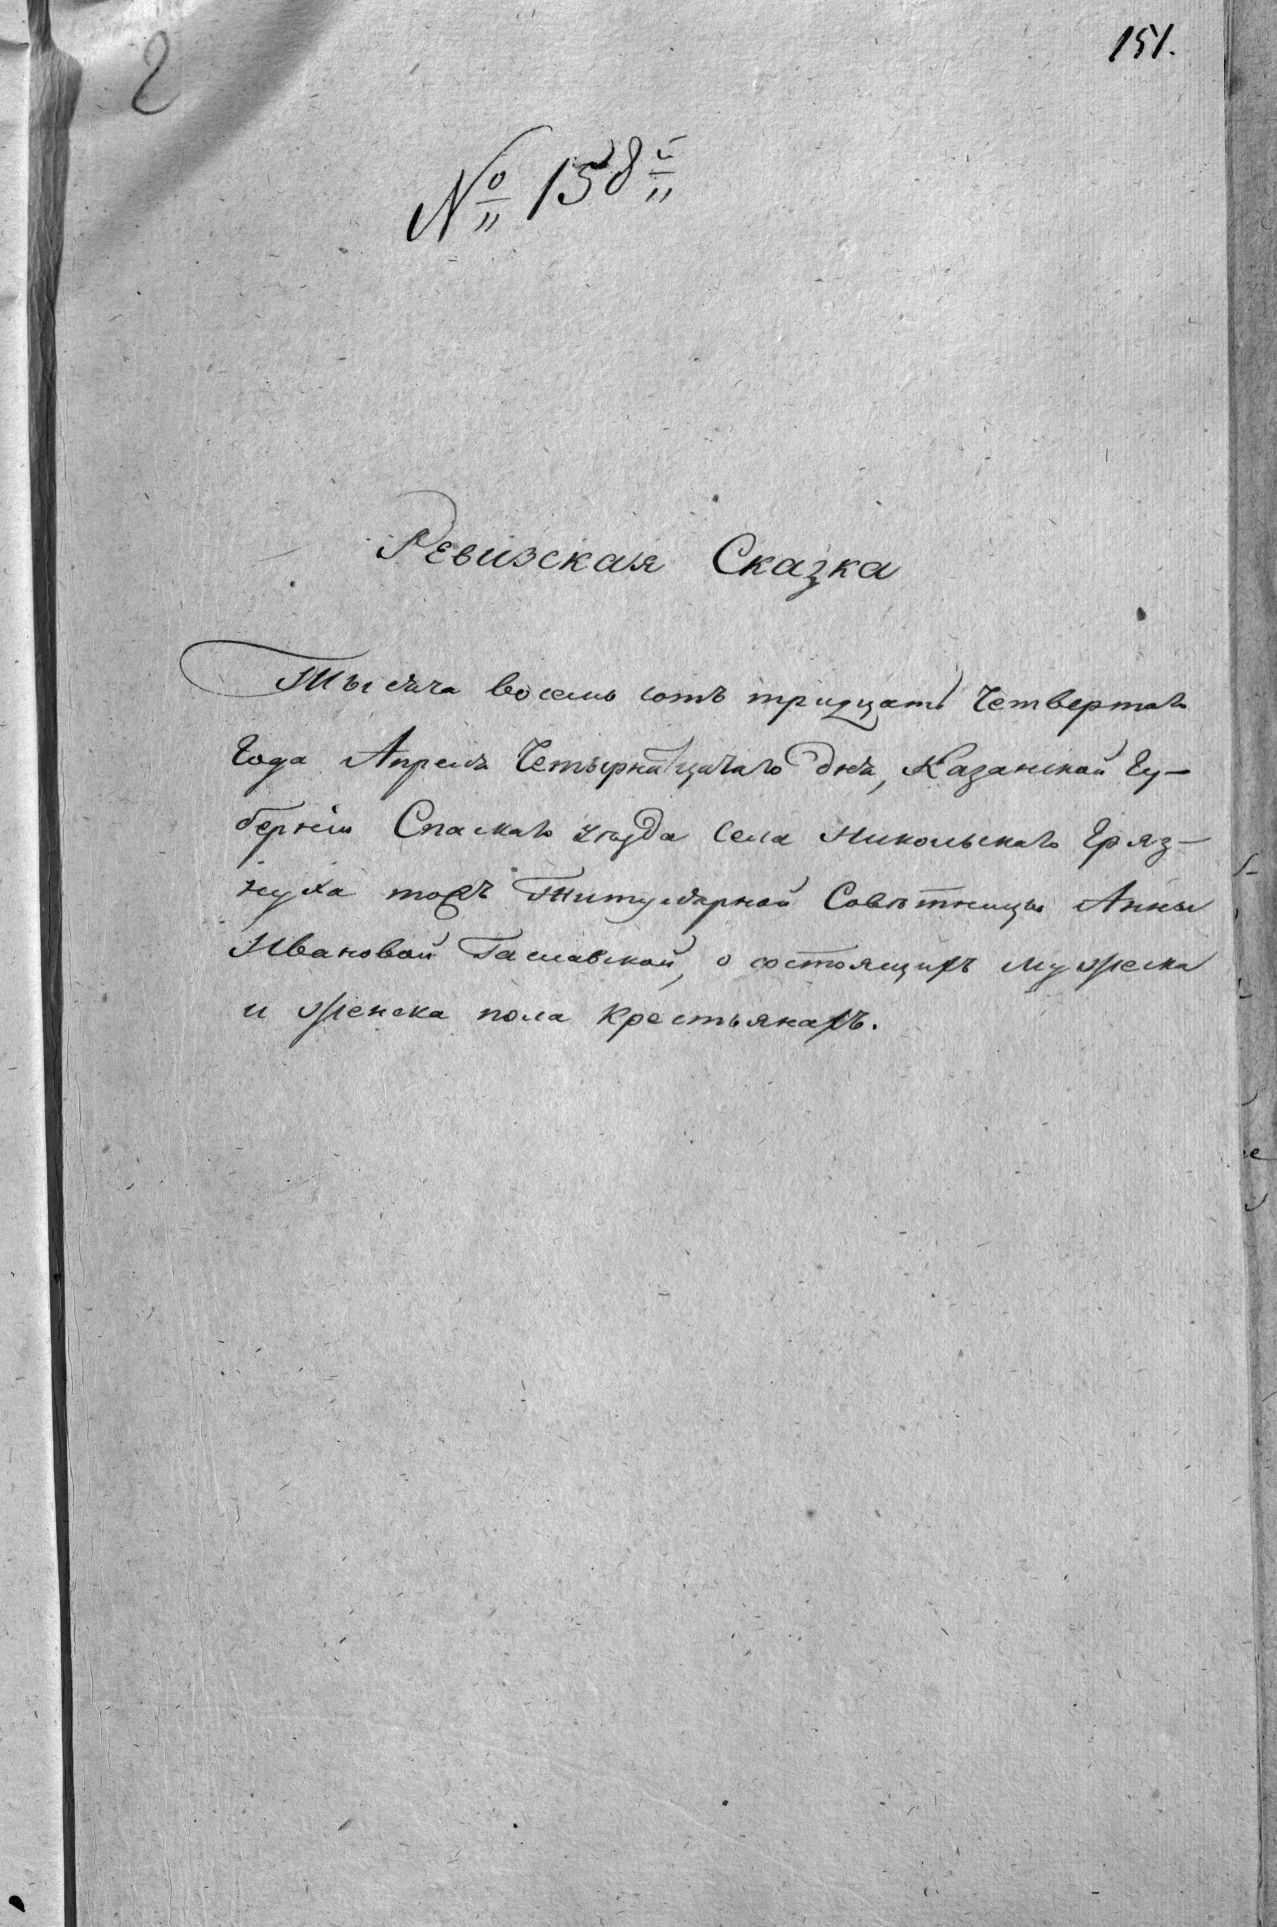 2
151.
№ 158й
Ревизская Сказка
Тысяча восемь сотъ тридцать Четвертаго
Года Апреля Четырнатцатаго дня, Казанской Гу-
берніи Спаскаго уѣзда Села Никольскаго Гряз-
нуха тожъ Титулярной Совѣтницы Анны
Ивановой о состоящихъ мужеска
и женска пола Крестьянахъ.